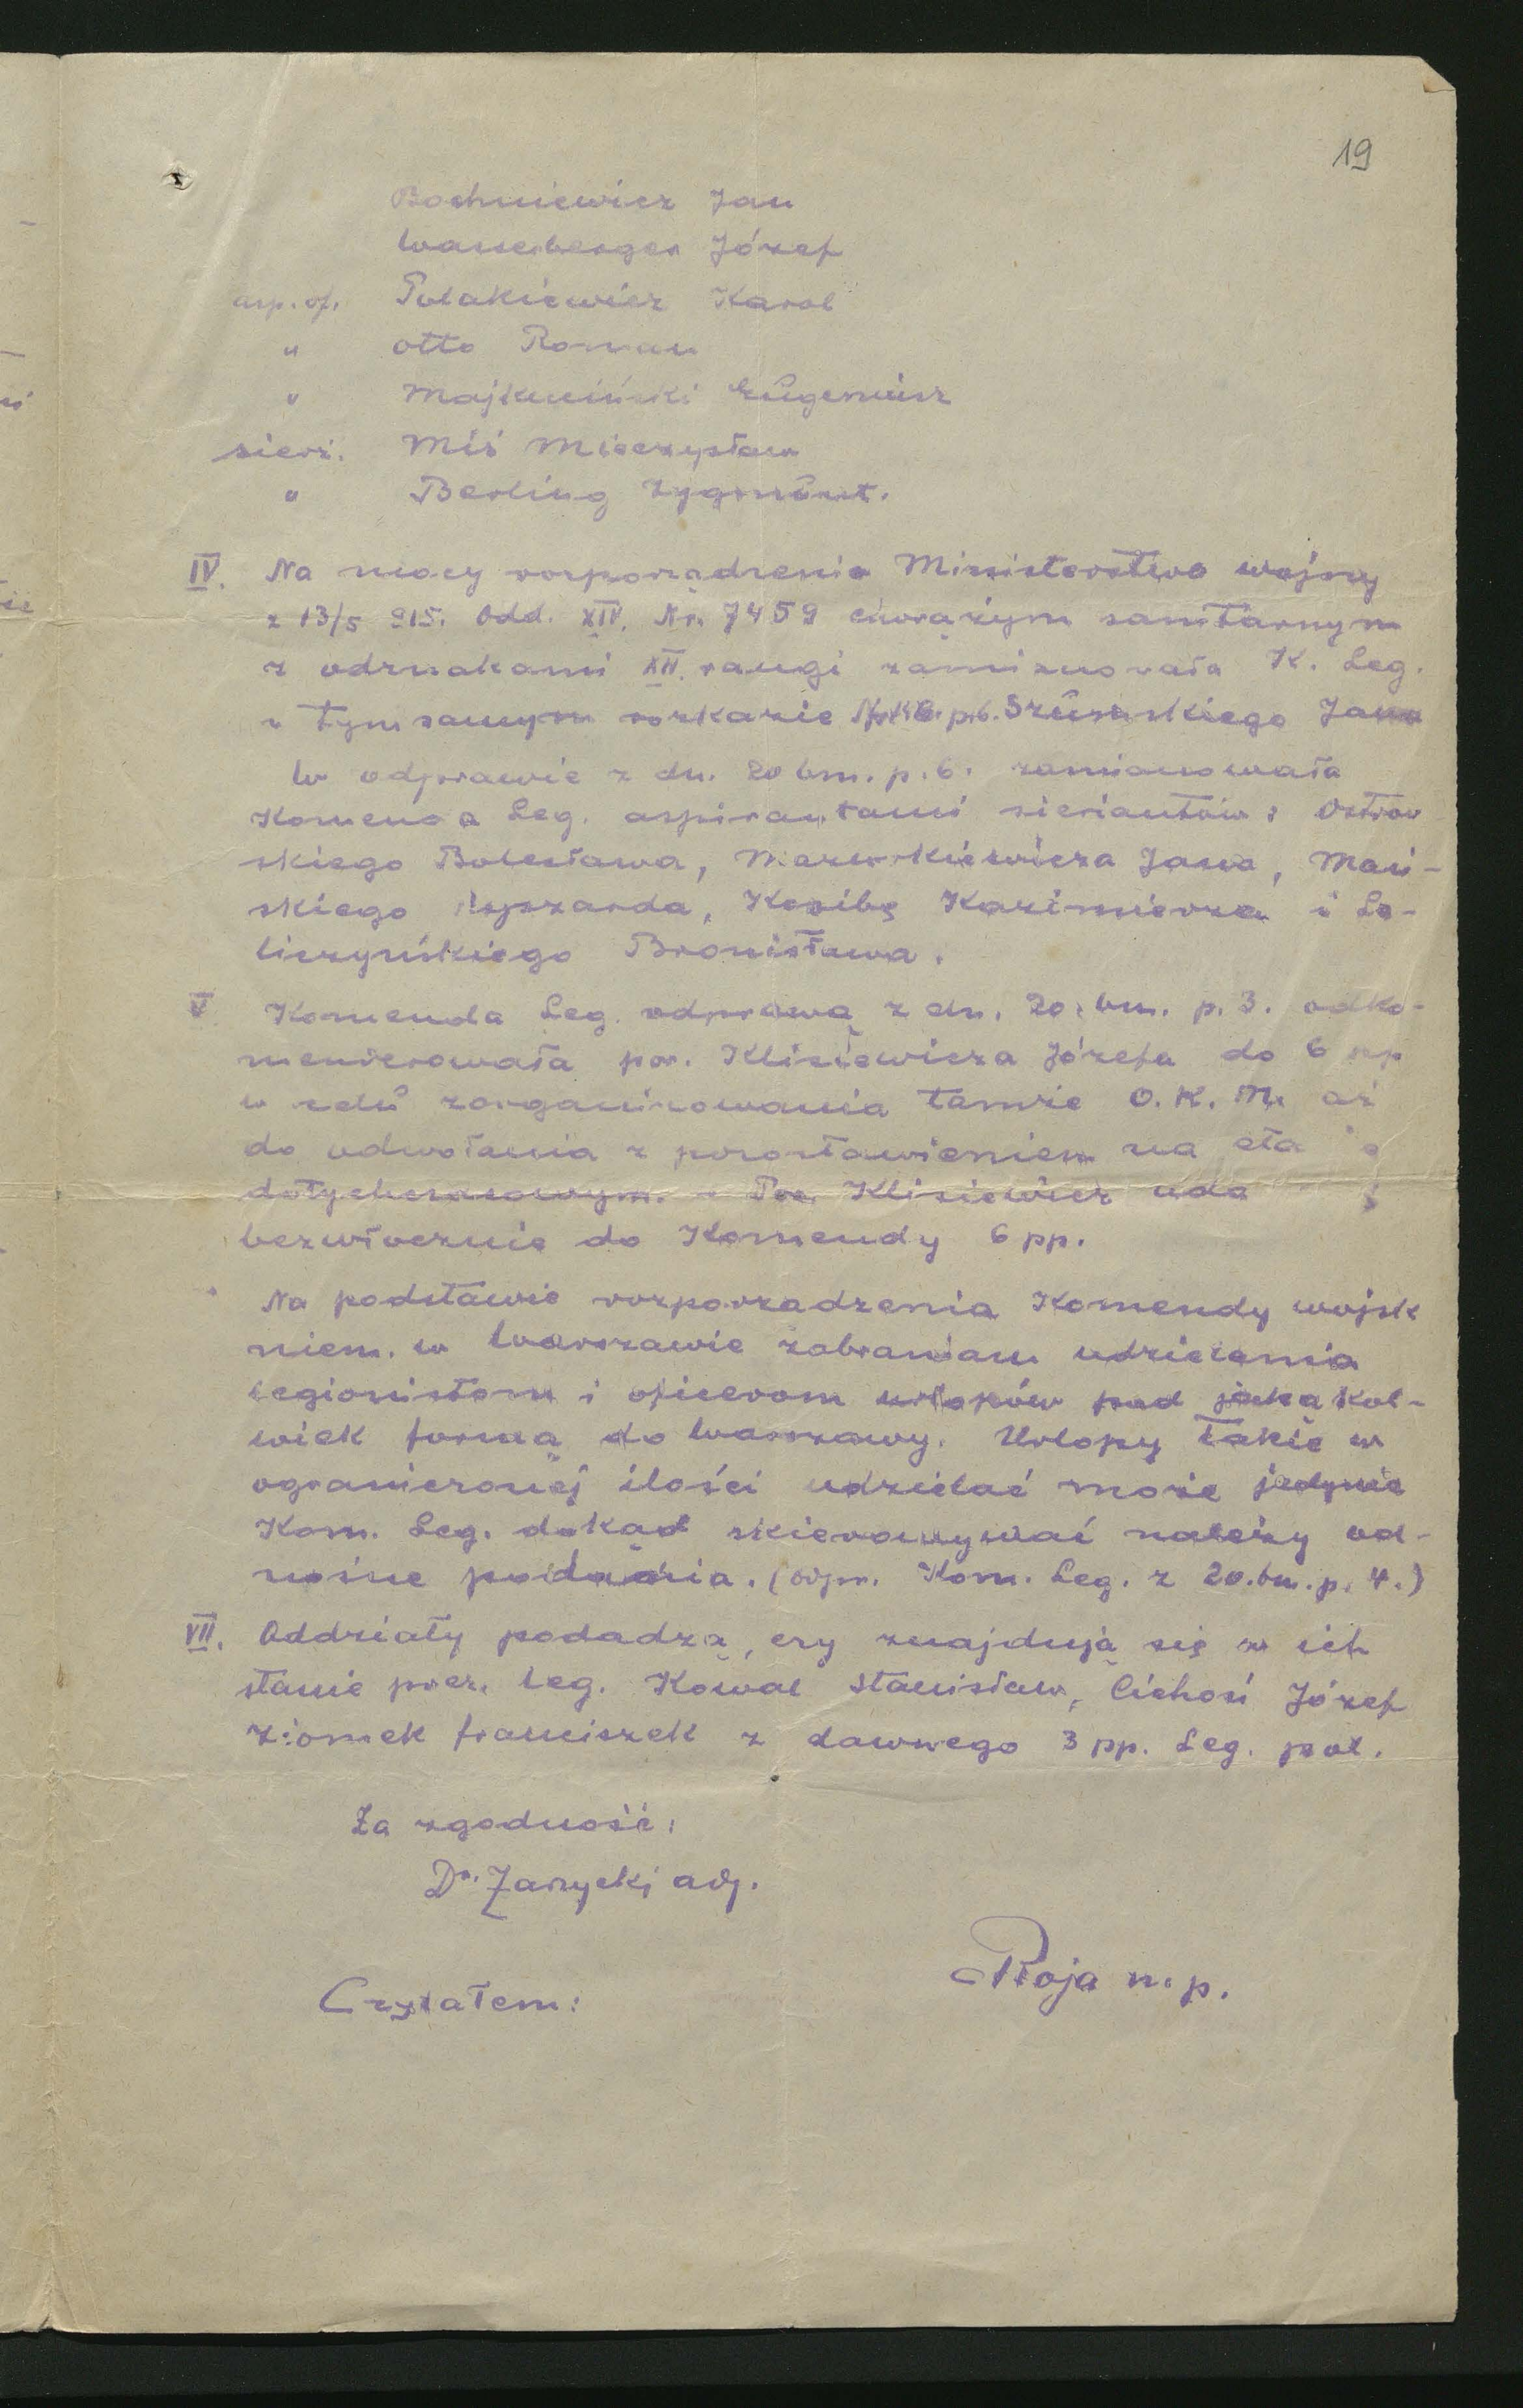 19
Bochniewicz Jan
Wassenberger Józef
asp. of. Polakiewicz Karol
" Otto Roman
" Majkuciński Eugeniusz
sierż. Miś Mieczysław
" Berling Zygmunt.
IV. Na mocy rozporządzenia Ministerstwa wojny
z 13/5 915. Odd. XIV. Nr. 7459 chorążym sanitarnym
z odznakami XII. rangi zamianowała K. Leg.
w tymsamym rozkazie p. 6. Jana
W odprawie z dn. 20 bm. p. 6. zamianowała
Komenda Leg. aspirantami sierżantów: Ostrow
skiego Bolesława, Mazurkiewicza Jana, Mań-
skiego Ryszarda, Kozibę Kazimierza i Le-
liczyńskiego Bronisława.
V Komenda Leg. odprawą z dn. 20. bm. p. 3. odko-
menderowała por. Klisiewicza Józefa do 6 pp
w celu zorganizowania tamże O. K. M. aż
do odwołania z pozostawieniem na eta e
dotychczasowym. - Por. Klisiewicz uda ę
bezwłocznie do Komendy 6 pp.
Na podstawie rozporządzenia Komendy wojsk
niem. w Warszawie zabraniam udzielania
legionistom i oficerom urlopów pod jakąkol-
wiek formą do Warszawy. Urlopy takie w
ograniczonej ilości udzielać może jedynie
Kom. Leg. dokąd skierowywać należy od-
nośne podania. (odpr. Kom. Leg. z 20. bm. p. 4.)
VII. Oddziały podadzą, czy znajdują się w ich
stanie pocz. Leg. Kowal Stanisław, Cichoń Józef
Ziomek Franciszek z dawnego 3 pp. Leg. pol.
Za zgodność:
Dr. Zarzycki adj.
Roja m. p.
Czytałem: